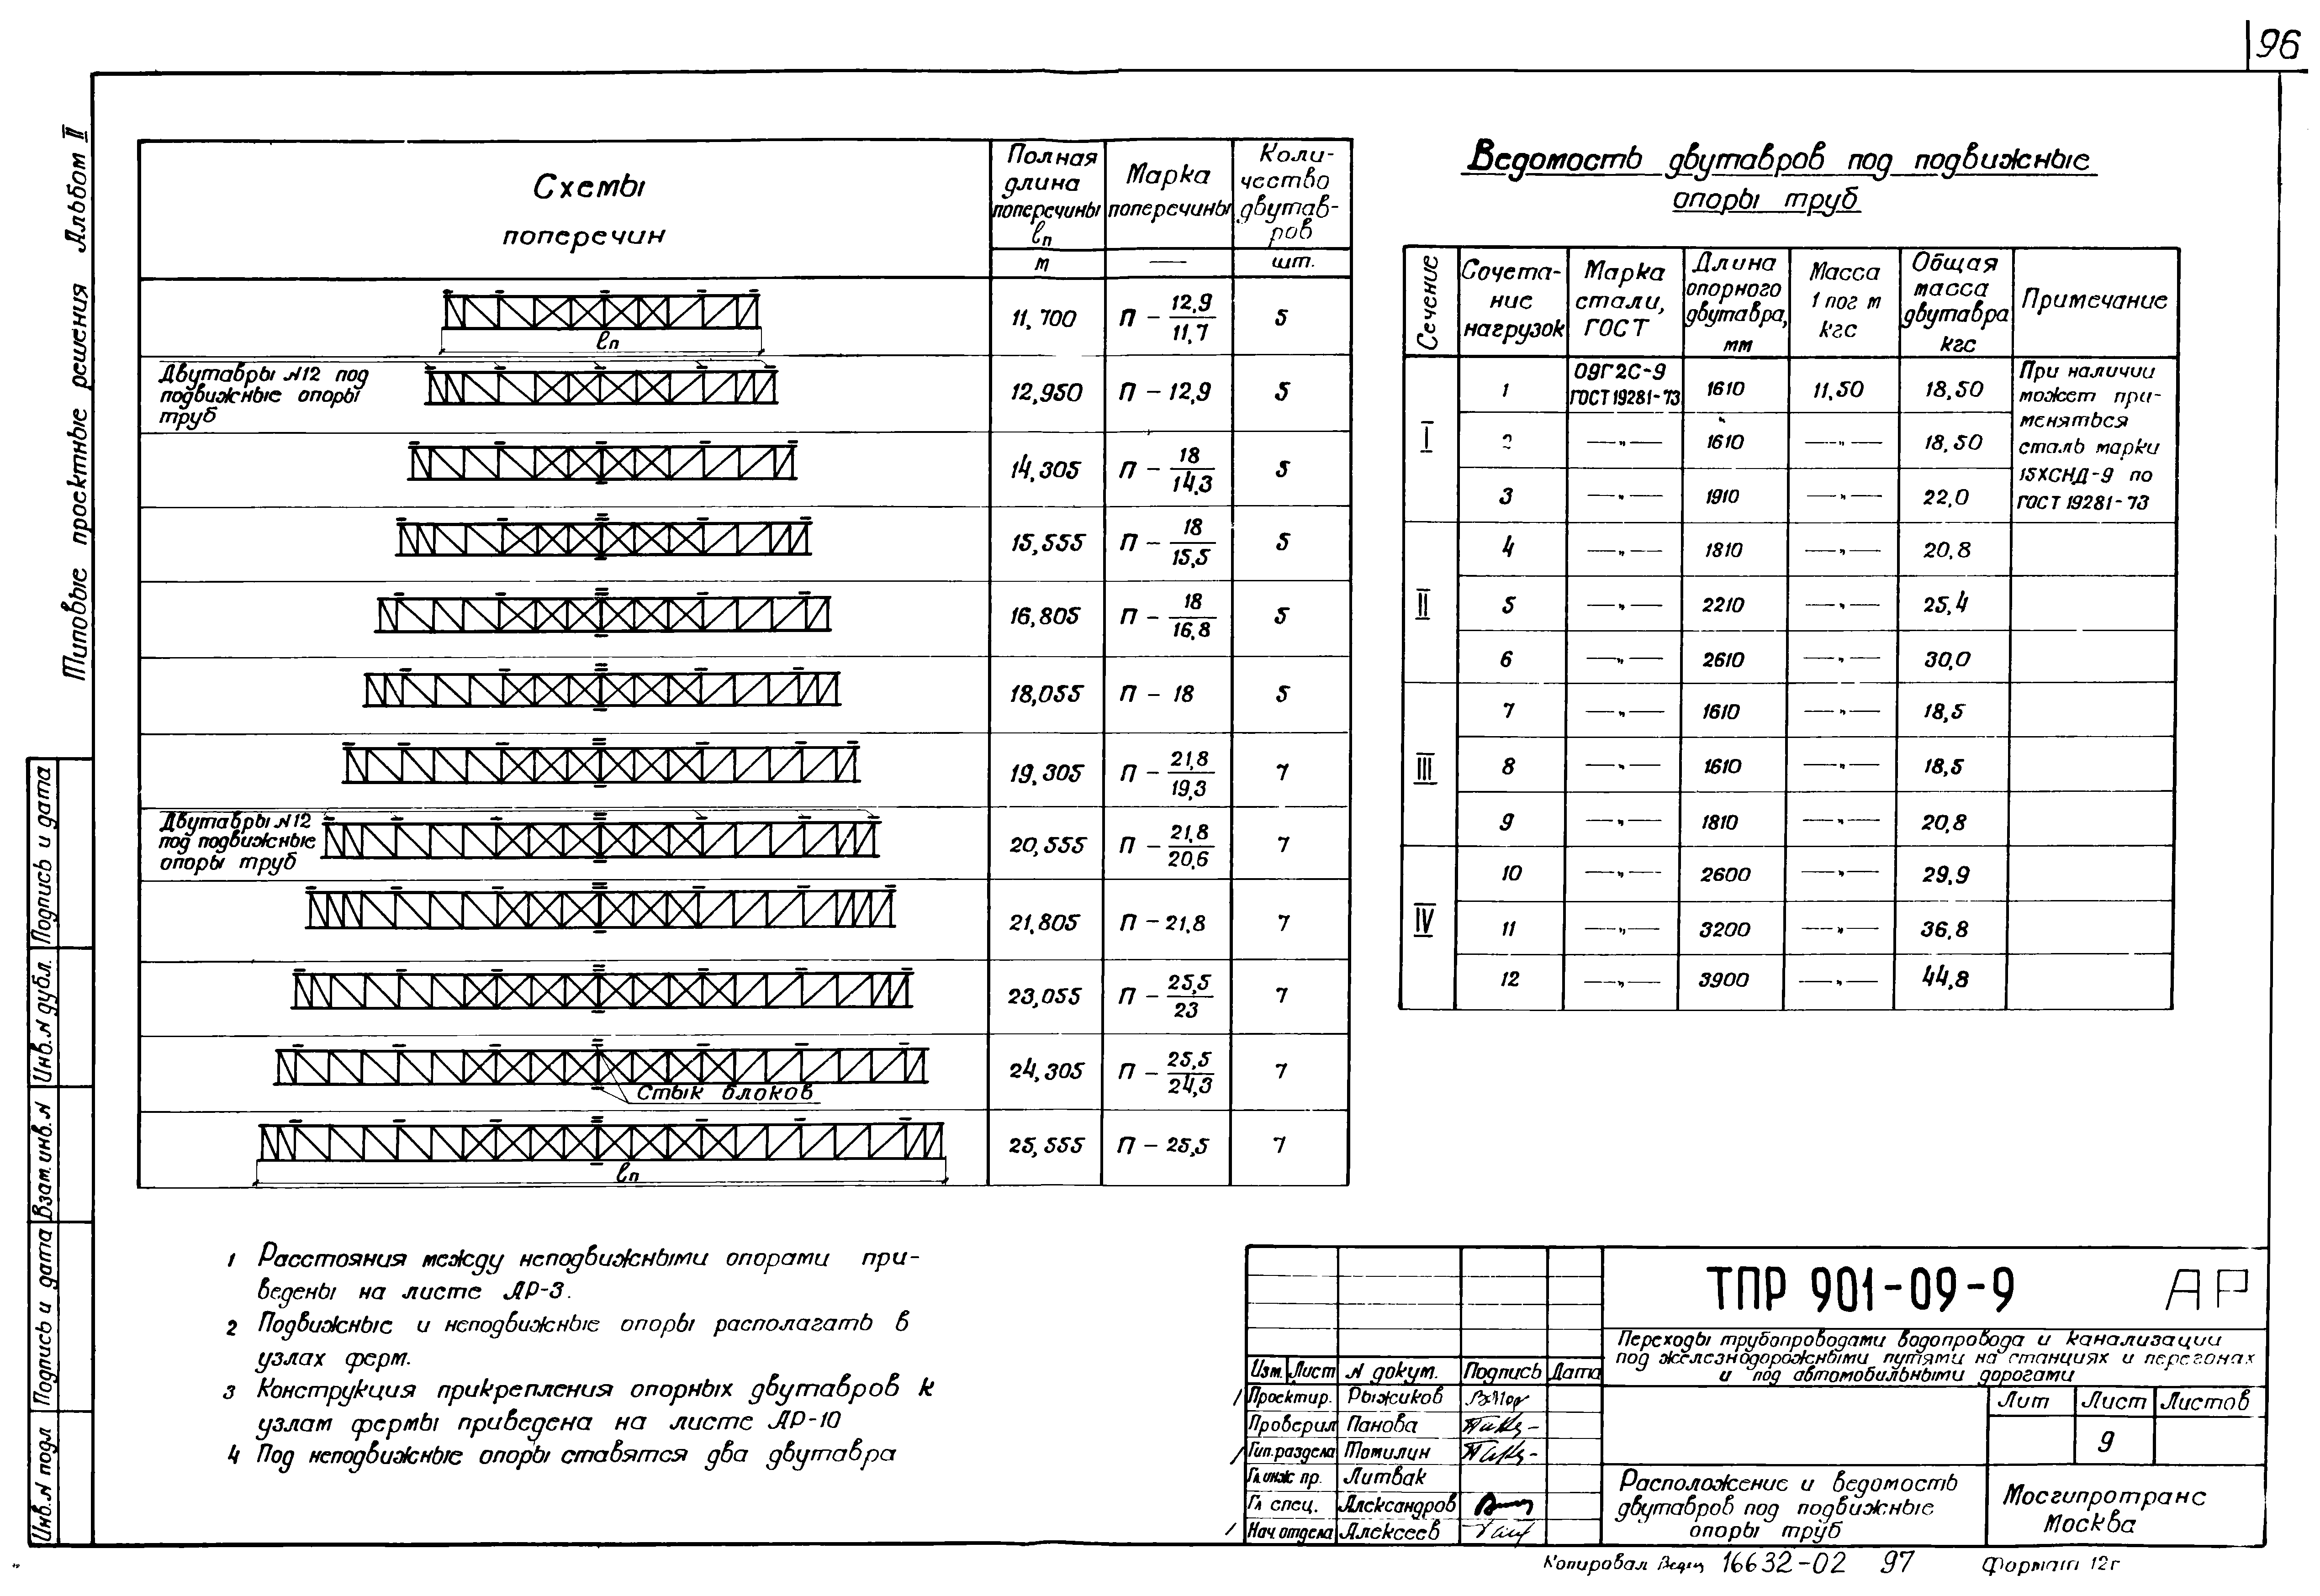 96
Типовые проектные решения Альбом II
Схемы
поперечин
Полная
длина
поперечины
ℓп
м
Марка
поперечины
—
Коли-
чество
двутав-
ров
шт.
ℓп
11,700 П – 12,9/11,7 5
Двутавры №12 под
подвижные опоры
труб
12,950 П – 12,9 5
14,305 П – 18/14,3 5
15,555 П – 18/15,5 5
16,805 П – 18/16,8 5
18,055 П – 18 5
19,305 П – 21,8/19,3 7
Двутавры №12
под подвижные
опоры труб
20,555 П – 21,8/20,6 7
21,805 П – 21,8 7
23,055 П – 25,5/23 7
24,305 П – 25,5/24,3 7
Стык блоков
25,555 П – 25,5 7
ℓп
Ведомость двутавров под подвижные
опоры труб
Сечение
Сочета-
ние
нагрузок
Марка
стали,
ГОСТ
Длина
опорного
двутавра,
мм
Масса
1 пог м
кгс
Общая
масса
двутавра
кгс
Примечание
I
1 09Г2С-9 ГОСТ 19281-73 1610 11,50 18,50
2 —"— 1610 —"— 18,50
3 —"— 1910 —"— 22,0
При наличии
может при-
меняться
сталь марки
15ХСНД-9 по
ГОСТ 19281-73
II
4 —"— 1810 —"— 20,8
5 —"— 2210 —"— 25,4
6 —"— 2610 —"— 30,0
III
7 —"— 1610 —"— 18,5
8 —"— 1610 —"— 18,5
9 —"— 1810 —"— 20,8
IV
10 —"— 2600 —"— 29,9
11 —"— 3200 —"— 36,8
12 —"— 3900 —"— 44,8
1 Расстояния между неподвижными опорами при-
ведены на листе АР-3.
2 Подвижные и неподвижные опоры располагать в
узлах ферм.
3 Конструкция прикрепления опорных двутавров к
узлам фермы приведена на листе АР-10
4 Под неподвижные опоры ставятся два двутавра
Инв.№ подл Подпись и дата Взам.инв.№ Инв.№ дубл. Подпись и дата
ТПР 901-09-9 АР
Переходы трубопроводами водопровода и канализации
под железнодорожными путями на станциях и перегонах
и под автомобильными дорогами
Изм. Лист № докум. Подпись Дата
Проектир. Рыжиков
Проверил Панова
Гип.раздела Томилин
Гл инж пр. Литвак
Гл спец. Александров
Нач отдела Алексеев
Лит Лист Листов
9
Расположение и ведомость
двутавров под подвижные
опоры труб
Мосгипротранс
Москва
Копировал 16632-02 97 Формат 12г